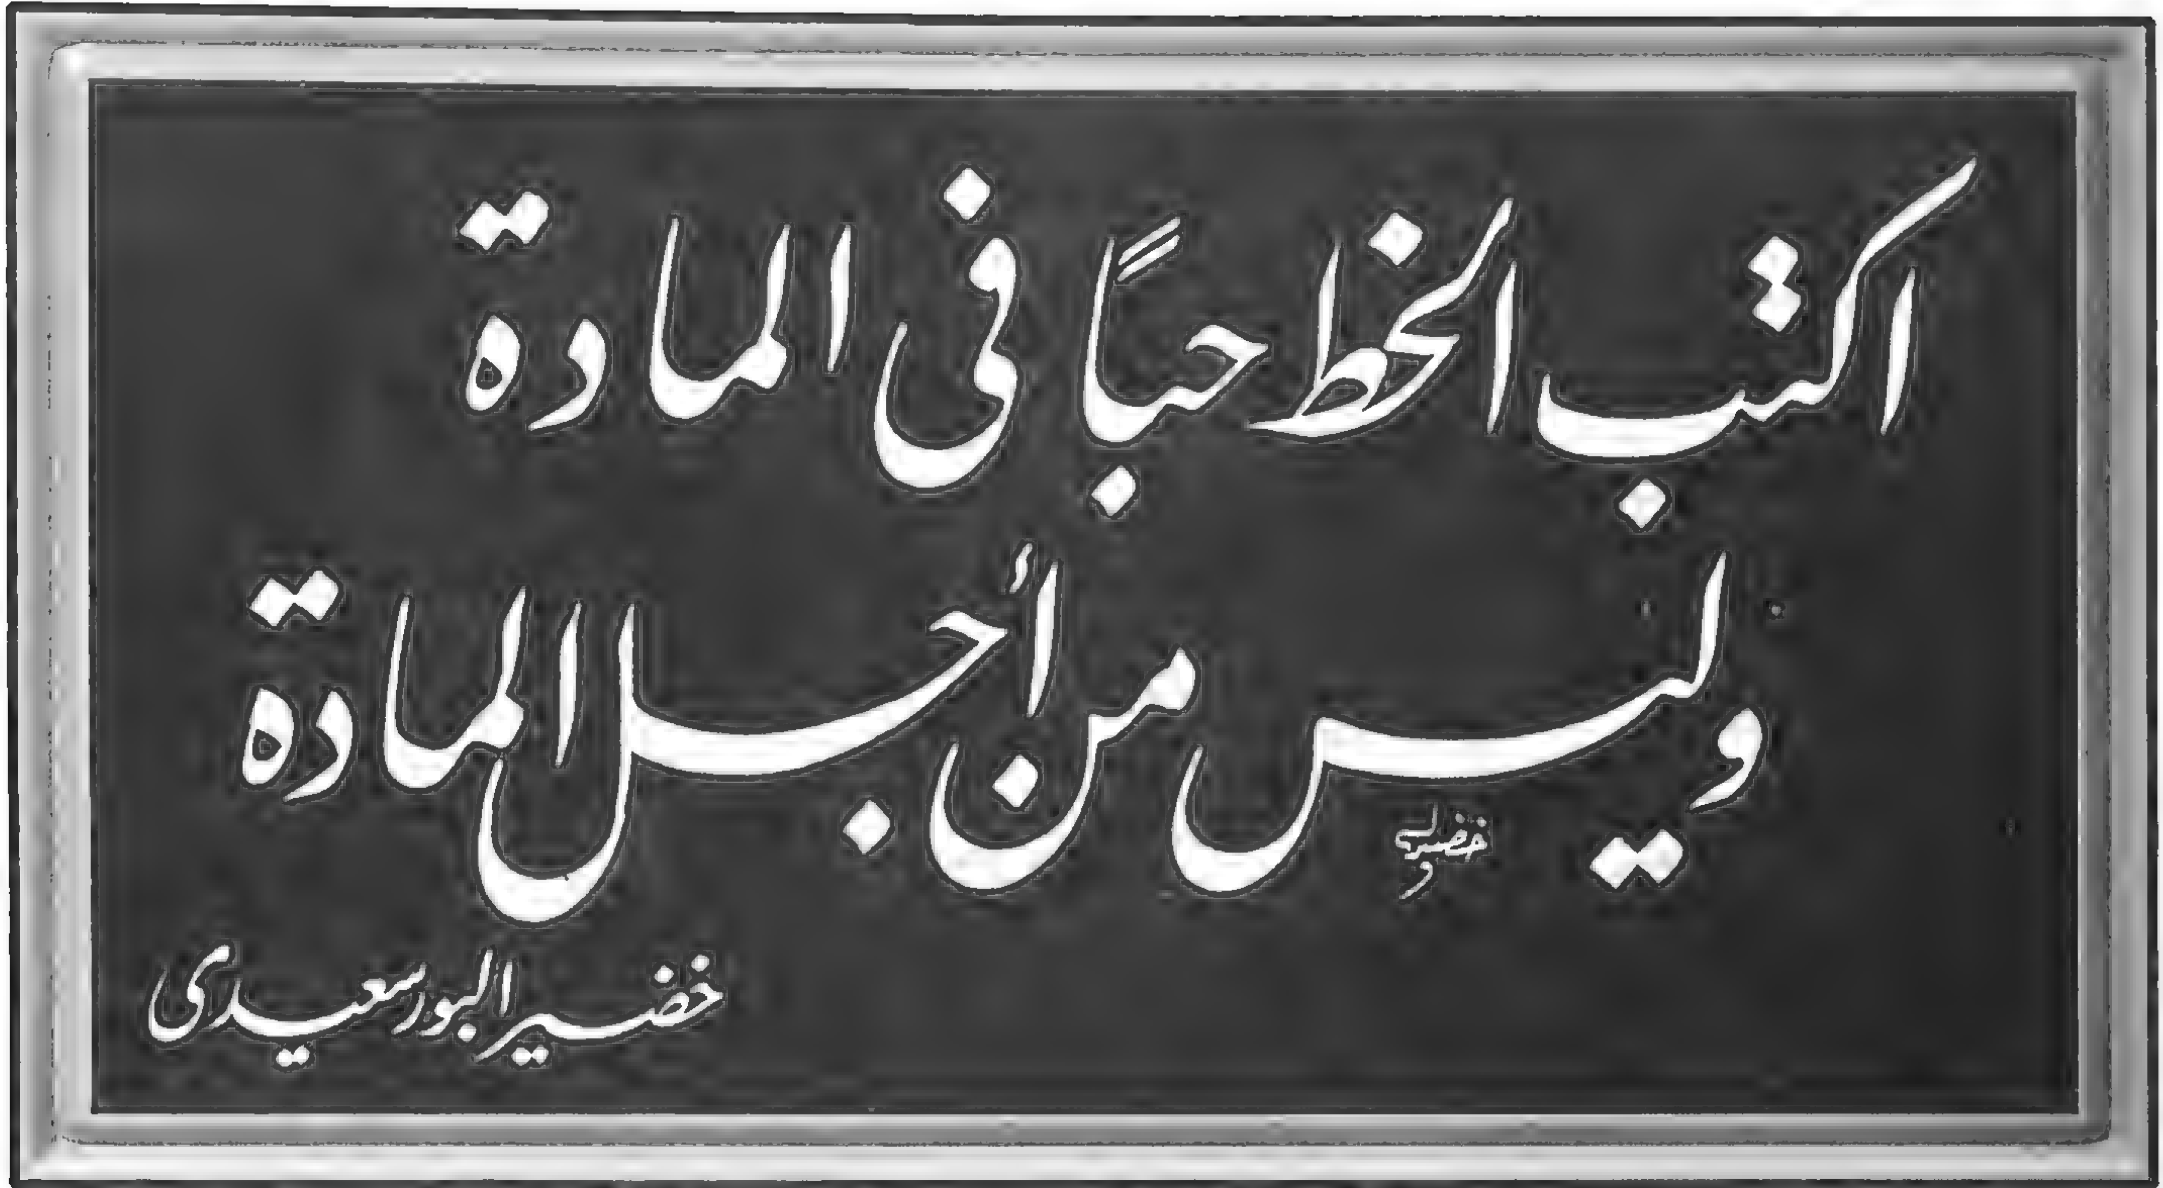 اكتب الخط حباً فى المادة
وليس من أجل المادة
خضير البورسعيدى